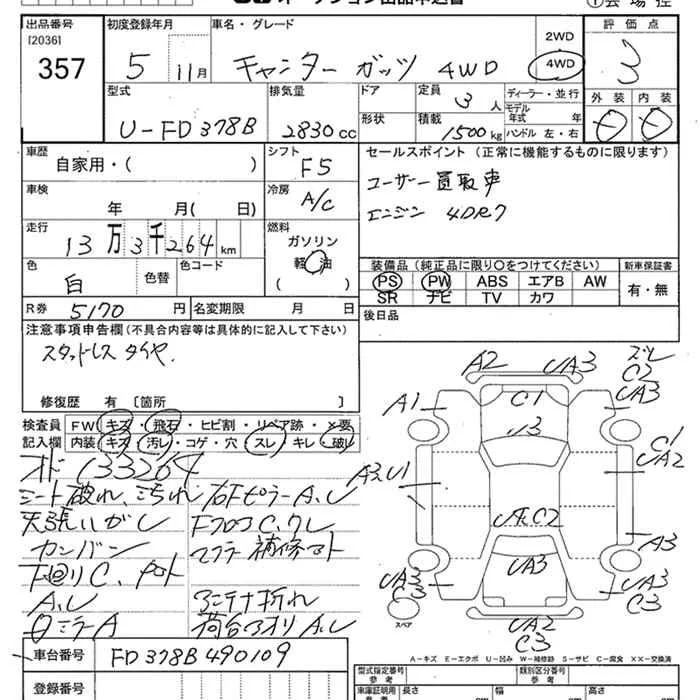 出品番号 初度登録年月 車名・グレード 評価点
[2036]
357
5 11月 キャンター ガッツ 4WD
2WD
4WD
3
型式 排気量 ドア 定員 ディーラー・並行 外装 内装
U-FD378B 2830cc 3人 モデル年式 年
形状 積載 1500kg ハンドル 左・右
車歴 シフト セールスポイント (正常に機能するものに限ります)
自家用・( ) F5
ユーザー買取車
車検 冷房
年 月( 日) A/C
エンジン 4DR7
走行 燃料
13万3千264km ガソリン
軽油
( )
色 色替 色コード
白
装備品 (純正品に限り○をつけてください) 新車保証書
PS PW ABS エアB AW 有・無
SR ナビ TV カワ
R券 5170円 名変期限 月 日
後日品
注意事項申告欄 (不具合内容等は具体的に記入して下さい)
スタッドレスタイヤ.
修復歴 有 [箇所 ]
検査員 FW キズ・飛石・ヒビ割・リペア跡・×要
記入欄 内装 キズ・汚レ・コゲ・穴 スレ キレ 破レ
オド 133264
シート破れ、汚れ 右Fピラー A、U
天張いがし Fフロア C、クレ
カンバン マフラ 補修マト
下回りC、
A、U アンテナ折れ
ミラー A 荷台アオリ A、U
車台番号 FD378B490109
登録番号
A2 UA3
C2
UA3
A1 C1
U3
C1
UA2
U1
C2
A3
UA3
UA3
C3
UA3
C3
スペア
UA2
C3
A-キズ E-エクボ U-凹み W-補修跡 S-サビ C-腐食 XX-交換済
型式指定番号 参考 類別区分番号 参考
車庫証明用 参考 長さ cm 幅 cm 高さ cm